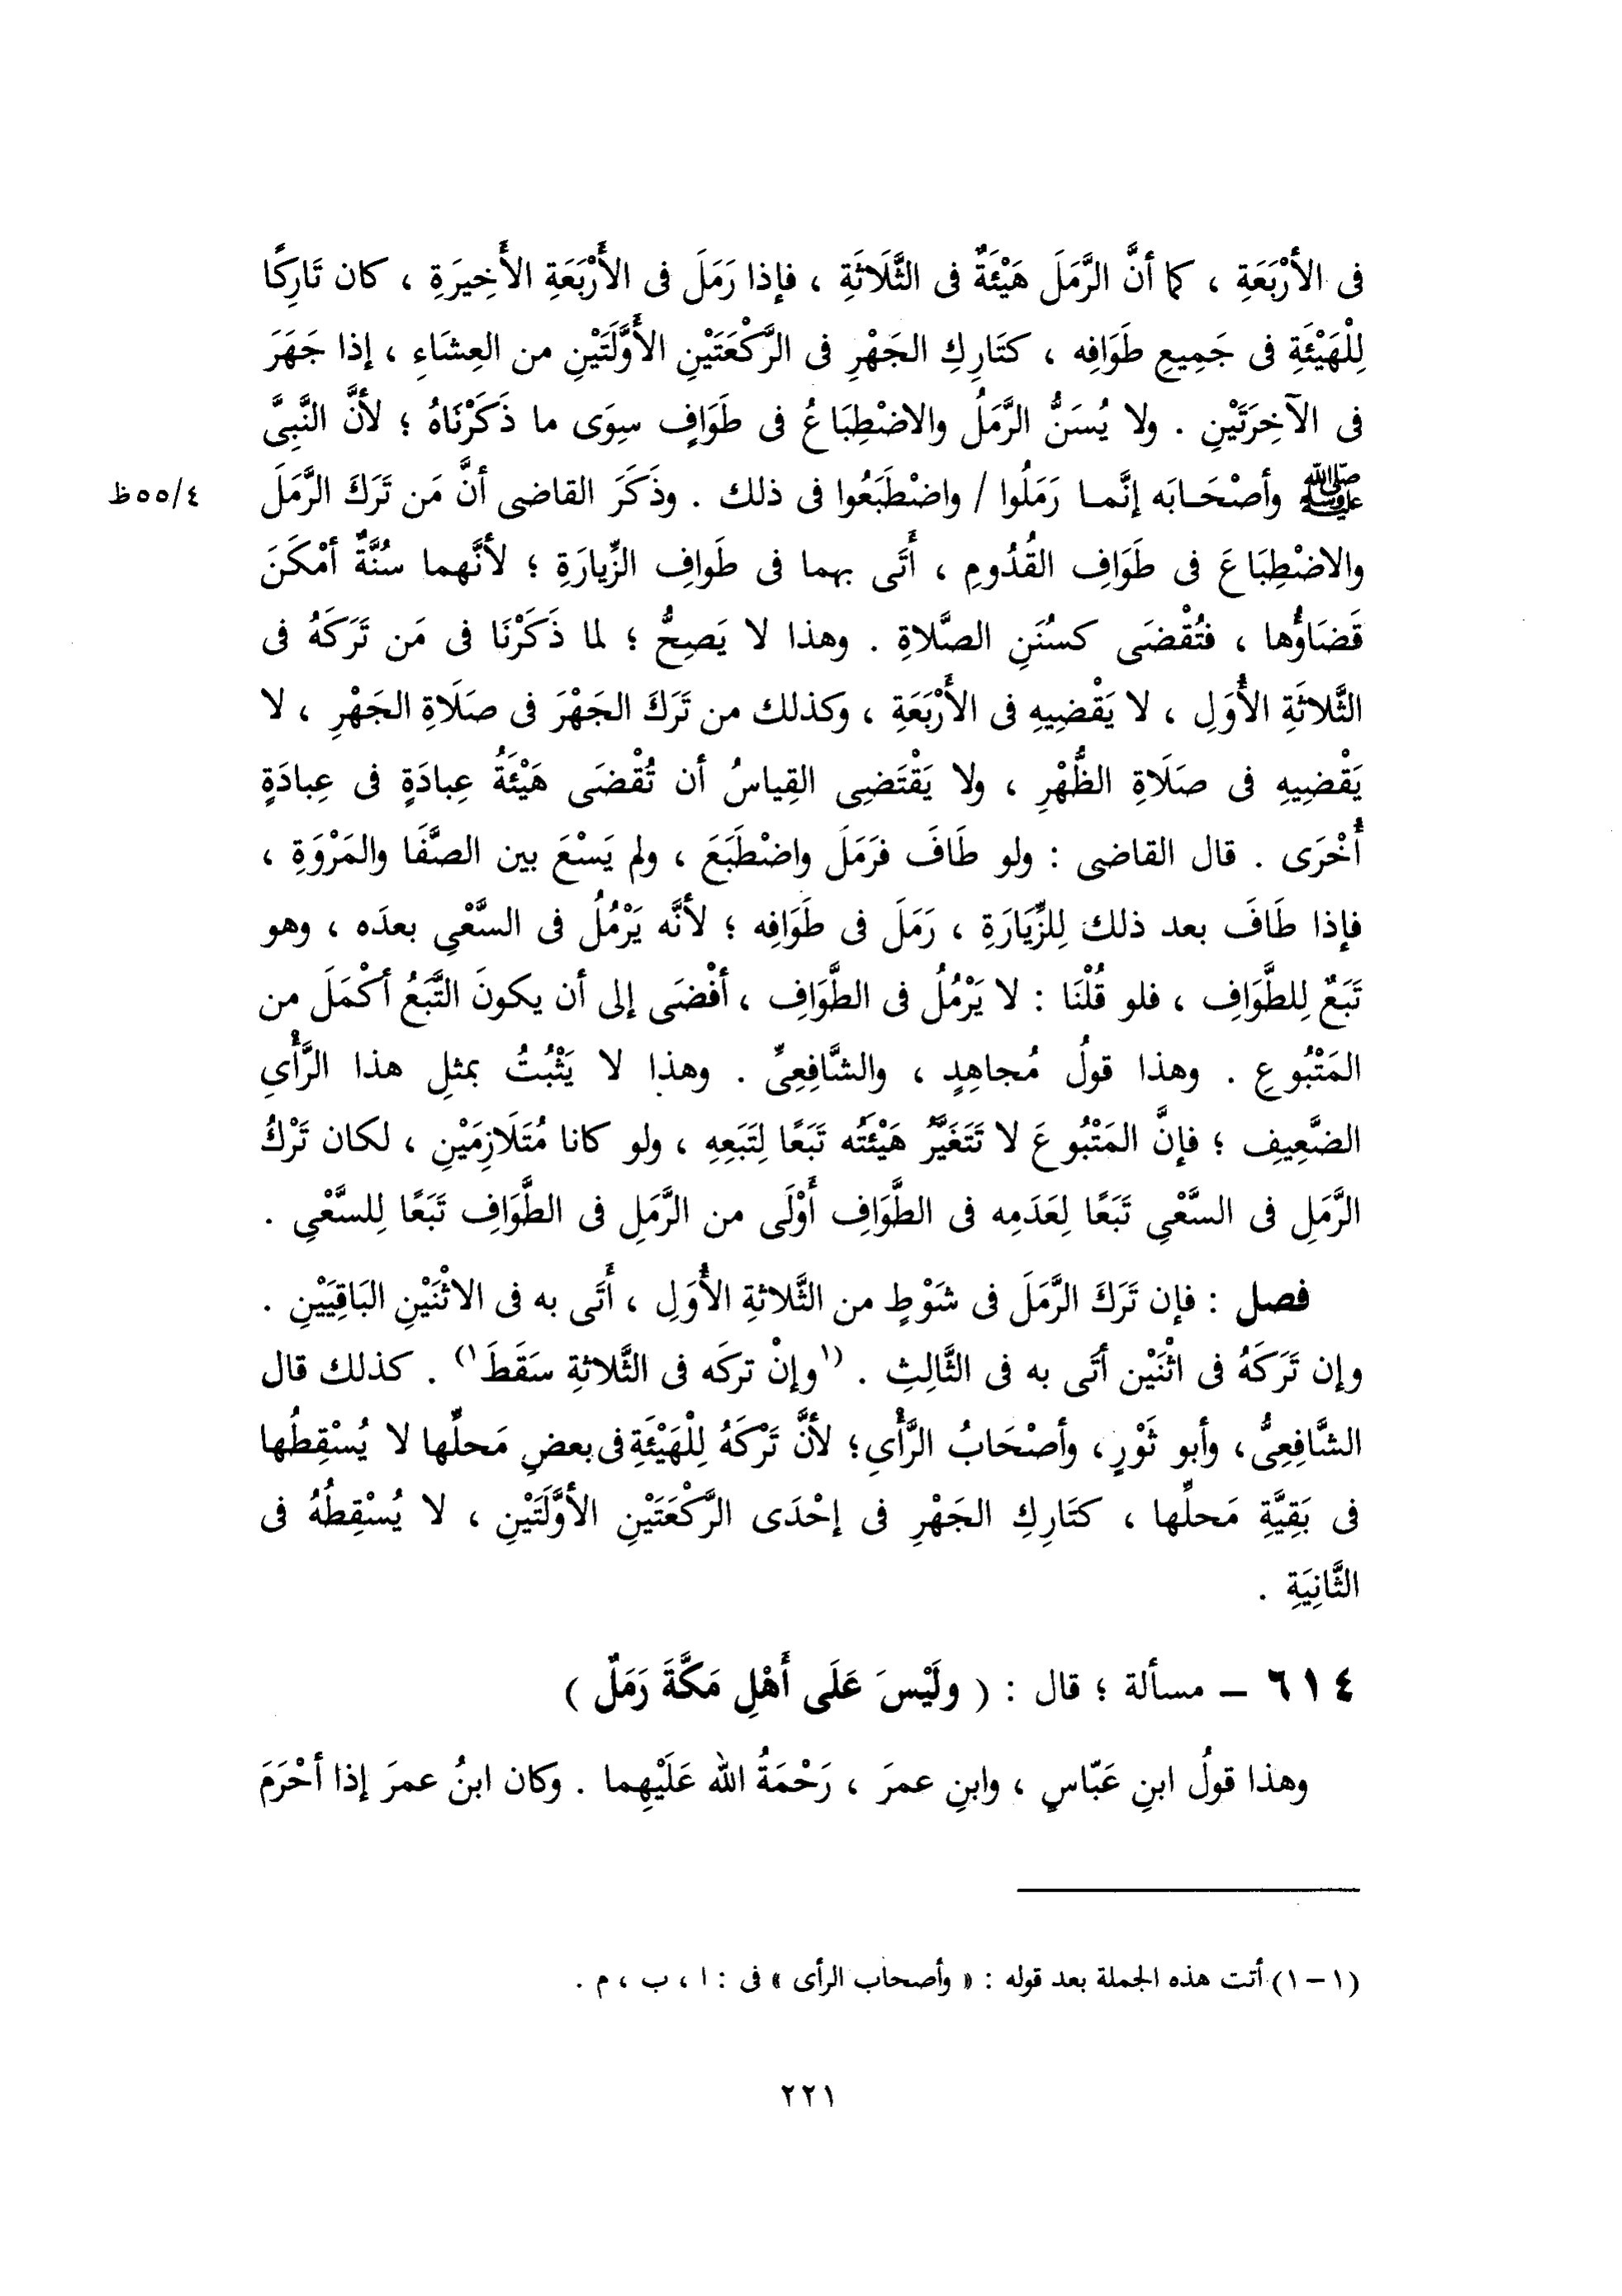 فى الأَرْبَعَةِ ، كما أنَّ الرَّمَلَ هَيْئَةٌ فى الثَّلَاثَةِ ، فإذا رَمَلَ فى الأَرْبَعَةِ الأَخِيرَةِ ، كان تَارِكًا
لِلْهَيْئَةِ فى جَمِيعِ طَوَافِه ، كتَارِكِ الجَهْرِ فى الرَّكْعَتَيْنِ الأَوَّلَتَيْنِ من العِشَاءِ ، إذا جَهَرَ
فى الآخِرَتَيْنِ . ولا يُسَنُّ الرَّمَلُ والاضْطِبَاعُ فى طَوَافٍ سِوَى ما ذَكَرْنَاهُ ؛ لأنَّ النَّبِىَّ
ﷺ وأصْحَـابَه إنَّمـا رَمَلُوا / واضْطَبَعُوا فى ذلك . وذَكَرَ القاضى أنَّ مَن تَرَكَ الرَّمَلَ
٤/٥٥ظ
والاضْطِبَاعَ فى طَوَافِ القُدُومِ ، أَتَى بهما فى طَوافِ الزِّيارَةِ ؛ لأنَّهما سُنَّةٌ أمْكَنَ
قَضَاؤُها ، فتُقْضَى كسُنَنِ الصَّلاةِ . وهذا لا يَصِحُّ ؛ لما ذَكَرْنَا فى مَن تَرَكَهُ فى
الثَّلاثَةِ الأُوَلِ ، لا يَقْضِيهِ فى الأَرْبَعَةِ ، وكذلك من تَرَكَ الجَهْرَ فى صَلَاةِ الجَهْرِ ، لا
يَقْضِيهِ فى صَلَاةِ الظُّهْرِ ، ولا يَقْتَضِى القِياسُ أن تُقْضَى هَيْئَةُ عِبادَةٍ فى عِبادَةٍ
أُخْرَى . قال القاضى : ولو طَافَ فرَمَلَ واضْطَبَعَ ، ولم يَسْعَ بين الصَّفَا والمَرْوَةِ ،
فإذا طَافَ بعد ذلك لِلزِّيَارَةِ ، رَمَلَ فى طَوَافِه ؛ لأنَّه يَرْمُلُ فى السَّعْىِ بعدَه ، وهو
تَبَعٌ لِلطَّوَافِ ، فلو قُلْنَا : لا يَرْمُلُ فى الطَّوَافِ ، أفْضَى إلى أن يكونَ التَّبَعُ أكْمَلَ من
المَتْبُوعِ . وهذا قولُ مُجاهِدٍ ، والشَّافِعِىِّ . وهذا لا يَثْبُتُ بمثلِ هذا الرَّأْىِ
الضَّعِيفِ ؛ فإنَّ المَتْبُوعَ لا تَتَغَيَّرُ هَيْئَتُه تَبَعًا لِتَبَعِهِ ، ولو كانا مُتَلَازِمَيْنِ ، لكان تَرْكُ
الرَّمَلِ فى السَّعْىِ تَبَعًا لِعَدَمِه فى الطَّوَافِ أَوْلَى من الرَّمَلِ فى الطَّوَافِ تَبَعًا لِلسَّعْىِ .
فصل : فإن تَرَكَ الرَّمَلَ فى شَوْطٍ من الثَّلاثةِ الأُوَلِ ، أَتَى به فى الاثْنَيْنِ البَاقِيَيْنِ .
وإن تَرَكَهُ فى اثْنَيْن أتَى به فى الثَّالِثِ . (١وإنْ تركَه فى الثَّلاثةِ سَقَطَ١) . كذلك قال
الشَّافِعِىُّ ، وأبو ثَوْرٍ ، وأصْحَابُ الرَّأْىِ ؛ لأنَّ تَرْكَهُ لِلْهَيْئَةِ فى بعضِ مَحلِّها لا يُسْقِطُها
فى بَقِيَّةِ مَحلِّها ، كتَارِكِ الجَهْرِ فى إحْدَى الرَّكْعَتَيْنِ الأوَّلَتَيْنِ ، لا يُسْقِطُهُ فى
الثَّانِيَةِ .
٦١٤ – مسألة ؛ قال : ( ولَيْسَ عَلَى أَهْلِ مَكَّةَ رَمَلٌ )
وهذا قولُ ابنِ عَبّاسٍ ، وابنِ عمرَ ، رَحْمَةُ الله عَلَيْهِما . وكان ابنُ عمرَ إذا أحْرَمَ
(١ – ١) أتت هذه الجملة بعد قوله : « وأصحاب الرأى » فى : ا ، ب ، م .
٢٢١